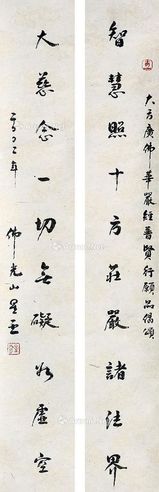 大方廣佛華嚴經普賢行願品偈頌
智慧照十方莊嚴諸法界
大慈念一切無礙如虛空
二〇〇二年
佛光山星雲